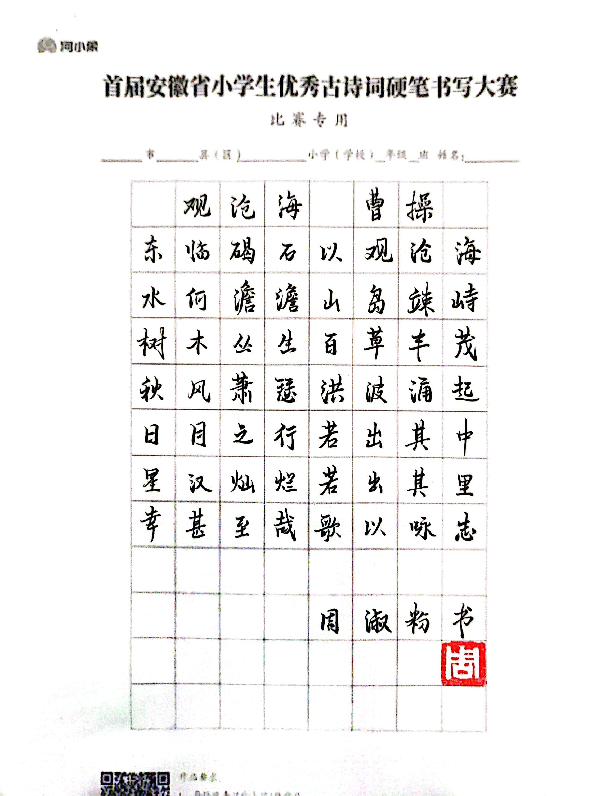 河小象
首届安徽省小学生优秀古诗词硬笔书写大赛
比赛专用
市 县(区) 小学(学校) 年级 班 姓名:
观沧海 曹操
东临碣石以观沧海
水何澹澹山岛竦峙
树木丛生百草丰茂
秋风萧瑟洪波涌起
日月之行若出其中
星汉灿烂若出其里
幸甚至哉歌以咏志
周淑粉书
周
作品要求: